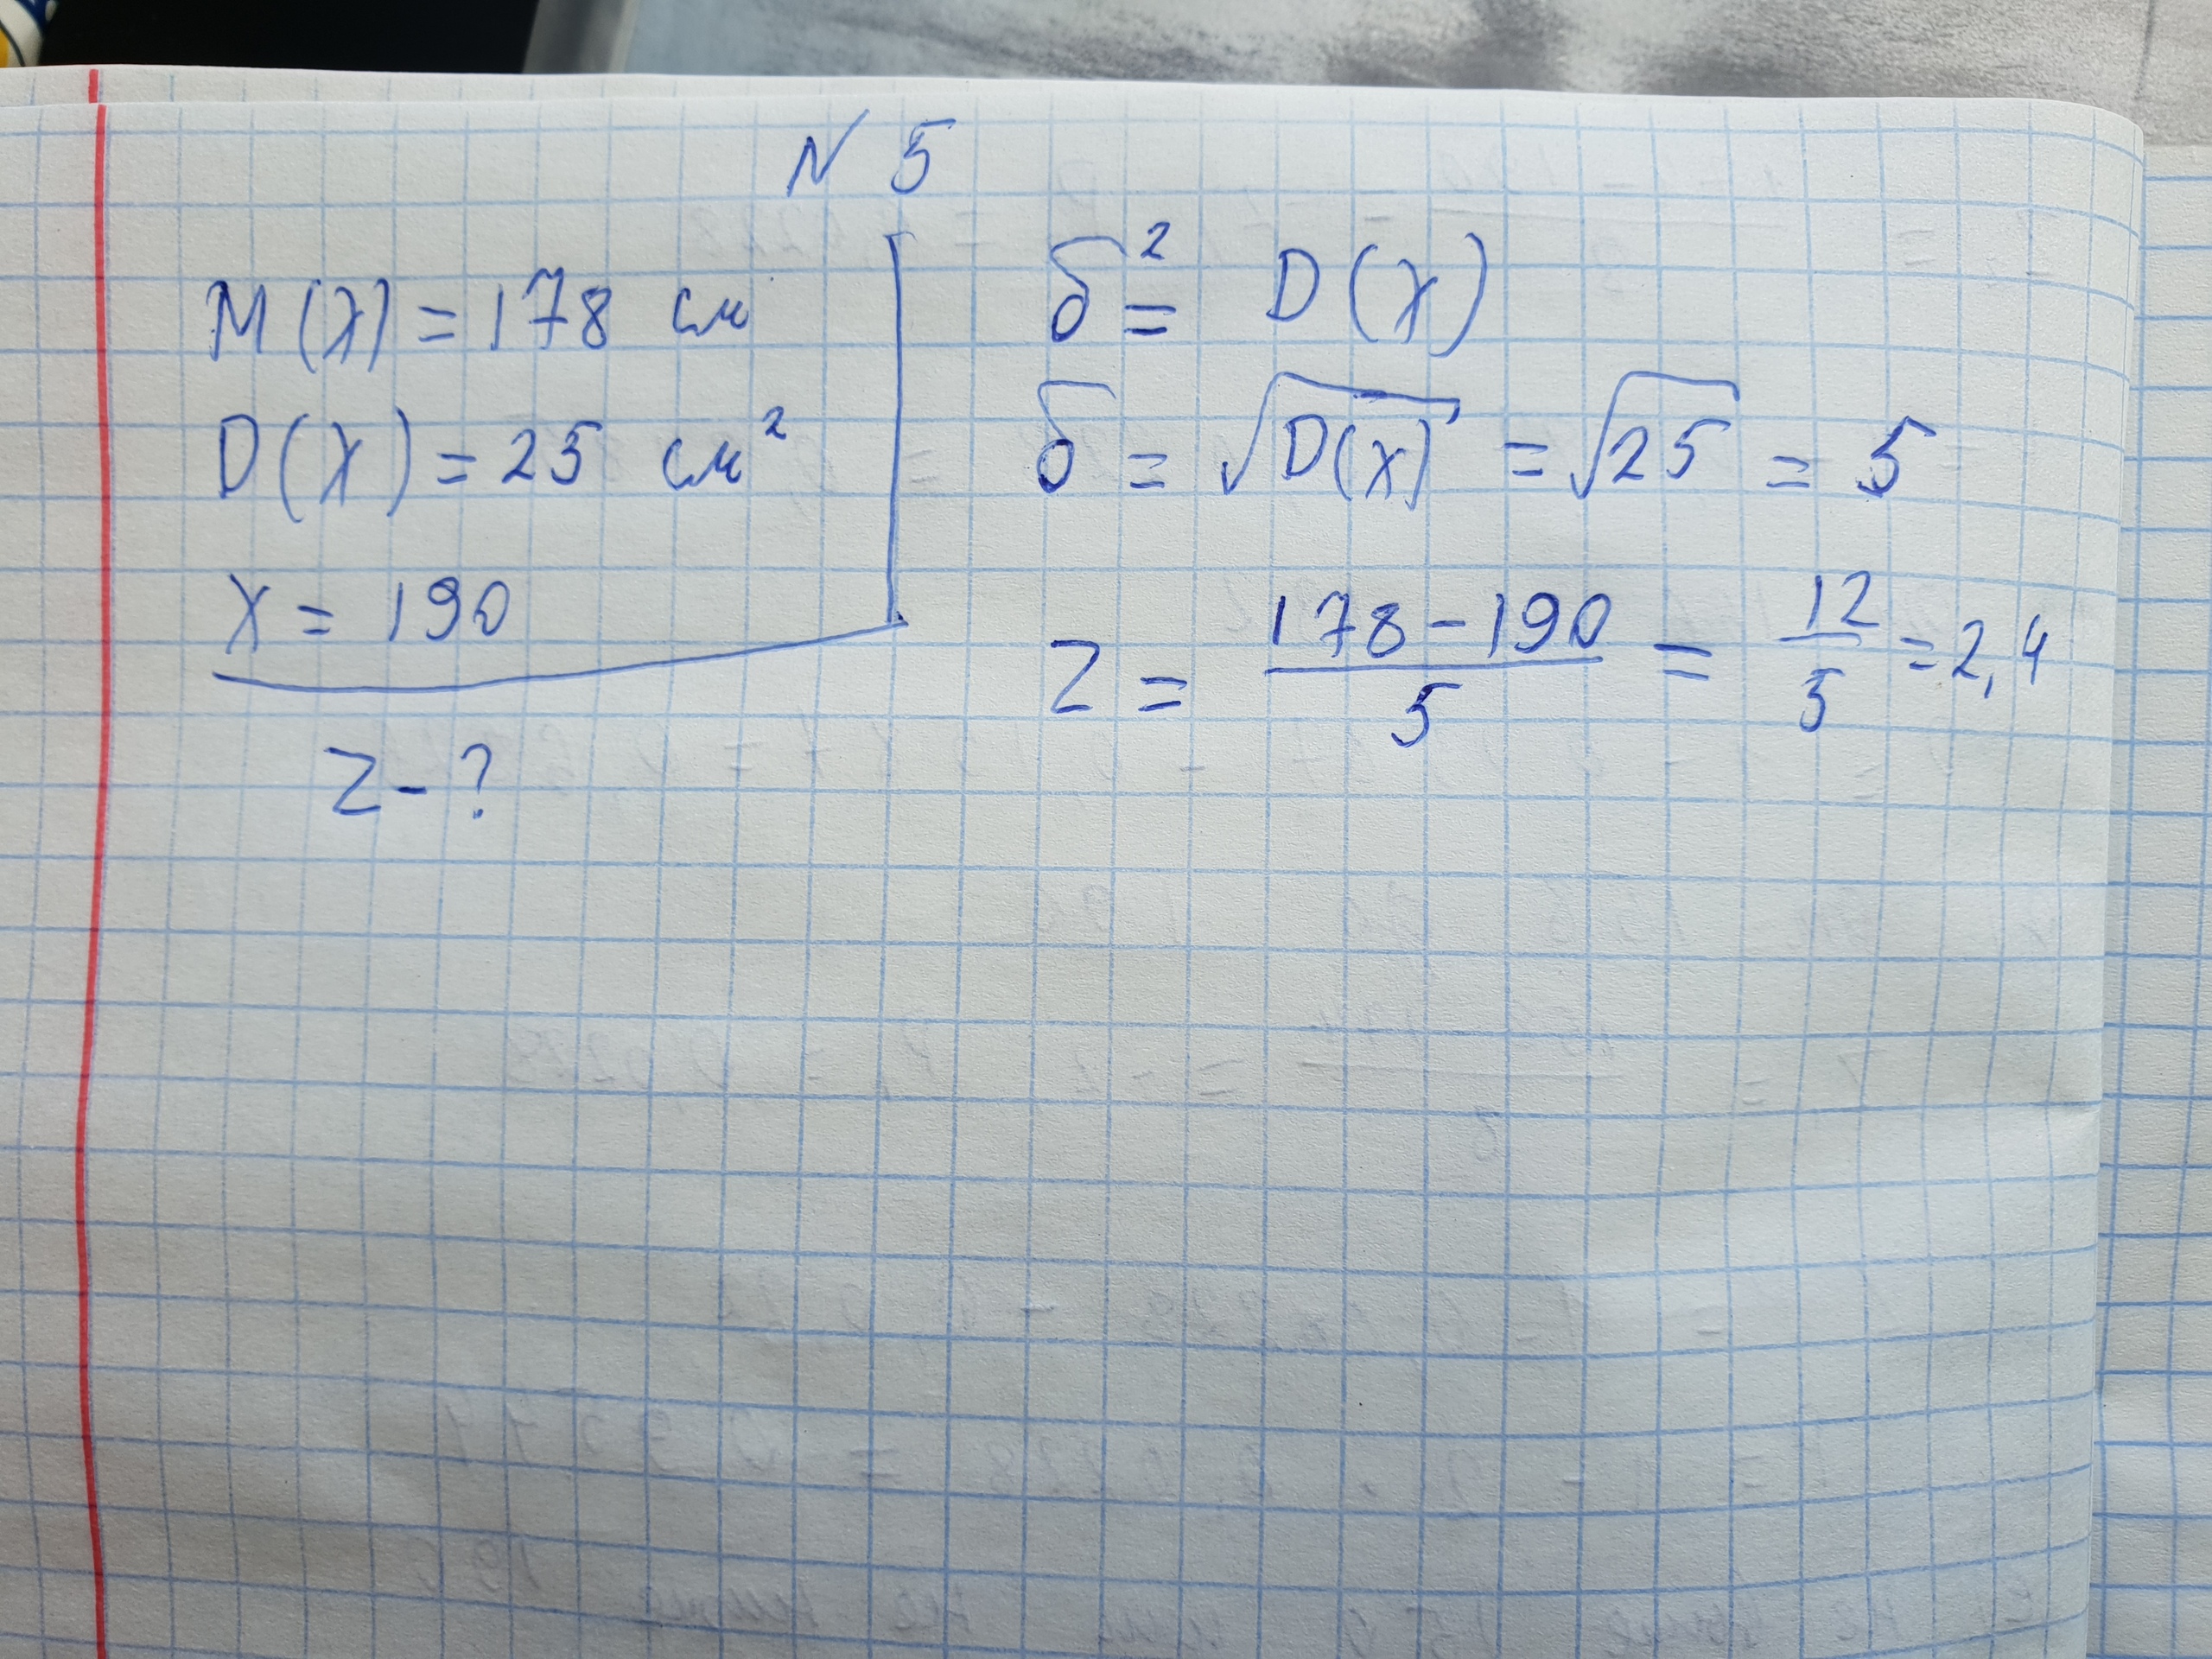 N 5
M(X) = 178 см
D(X) = 25 см²
X = 190
Z - ?
δ² = D(X)
δ = √D(X) = √25 = 5
Z = (178 - 190)/5 = 12/5 = 2,4